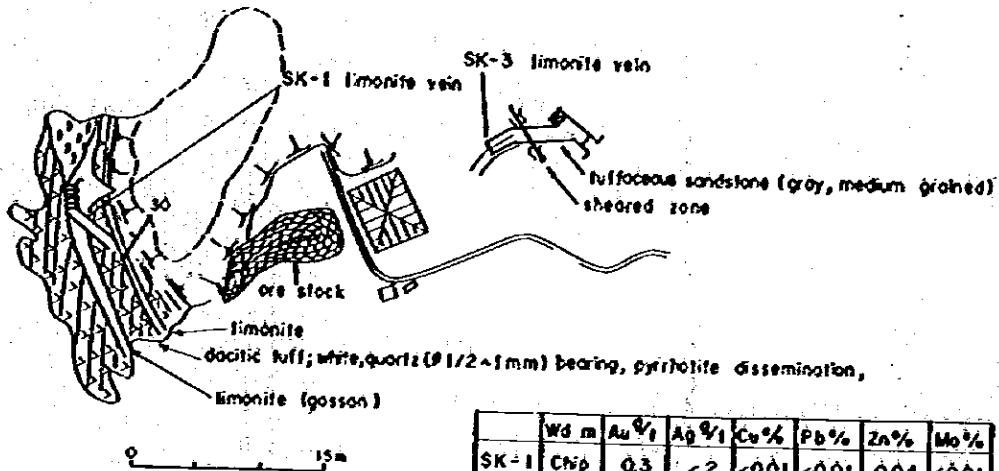 SK-1 limonite vein
SK-3 limonite vein
tuffaceous sandstone (gray, medium grained)
sheared zone
30
ore stock
limonite
dacitic tuff; white, quartz (ø 1/2 ~ 1mm) bearing, pyrrhotite dissemination,
limonite (gossan)
0 15m
Wd m Au g/t Ag g/t Cu% Pb% Zn% Mo%
SK-1 Chip 0.3 <2 <0.01 <0.01